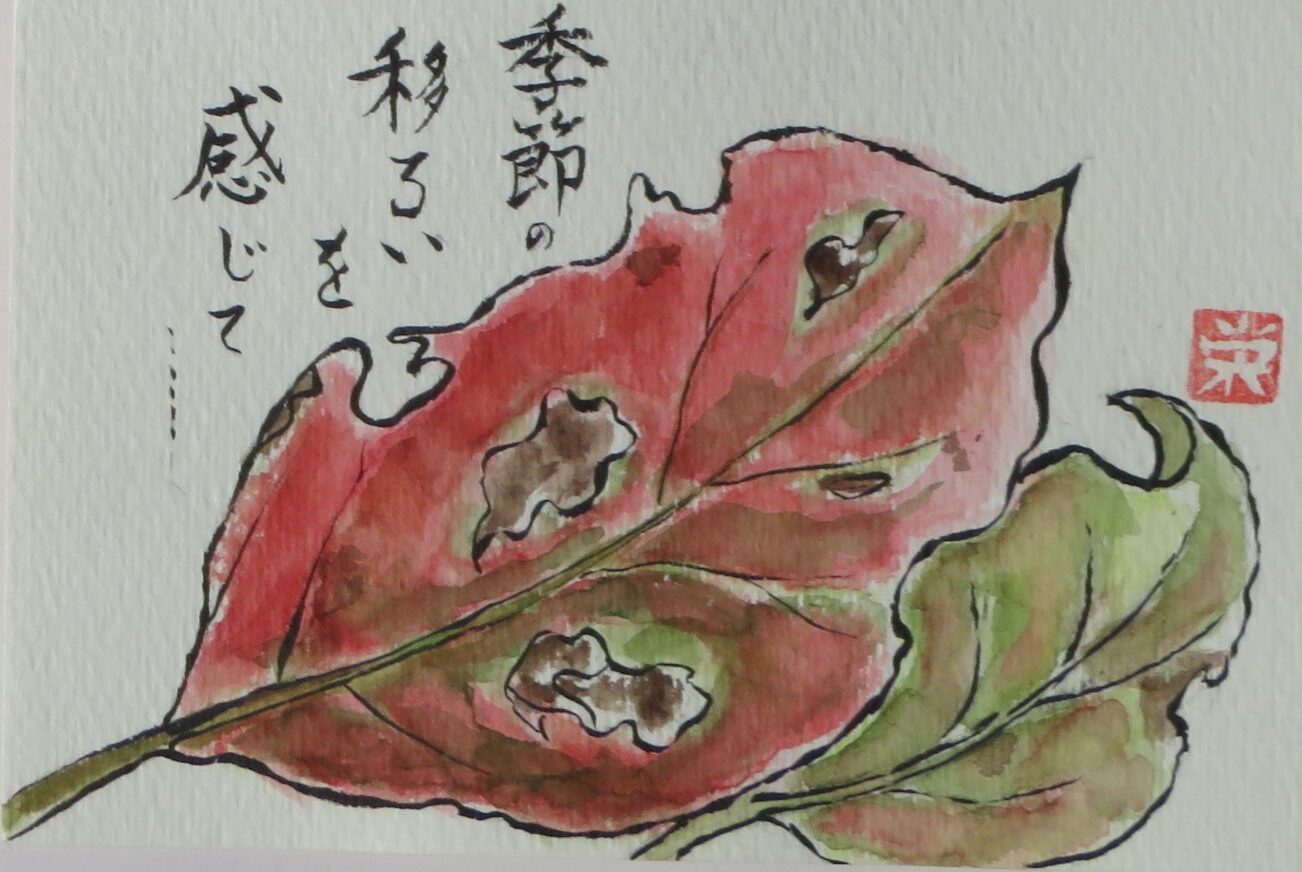 季節の
移ろいを
感じて……
栄